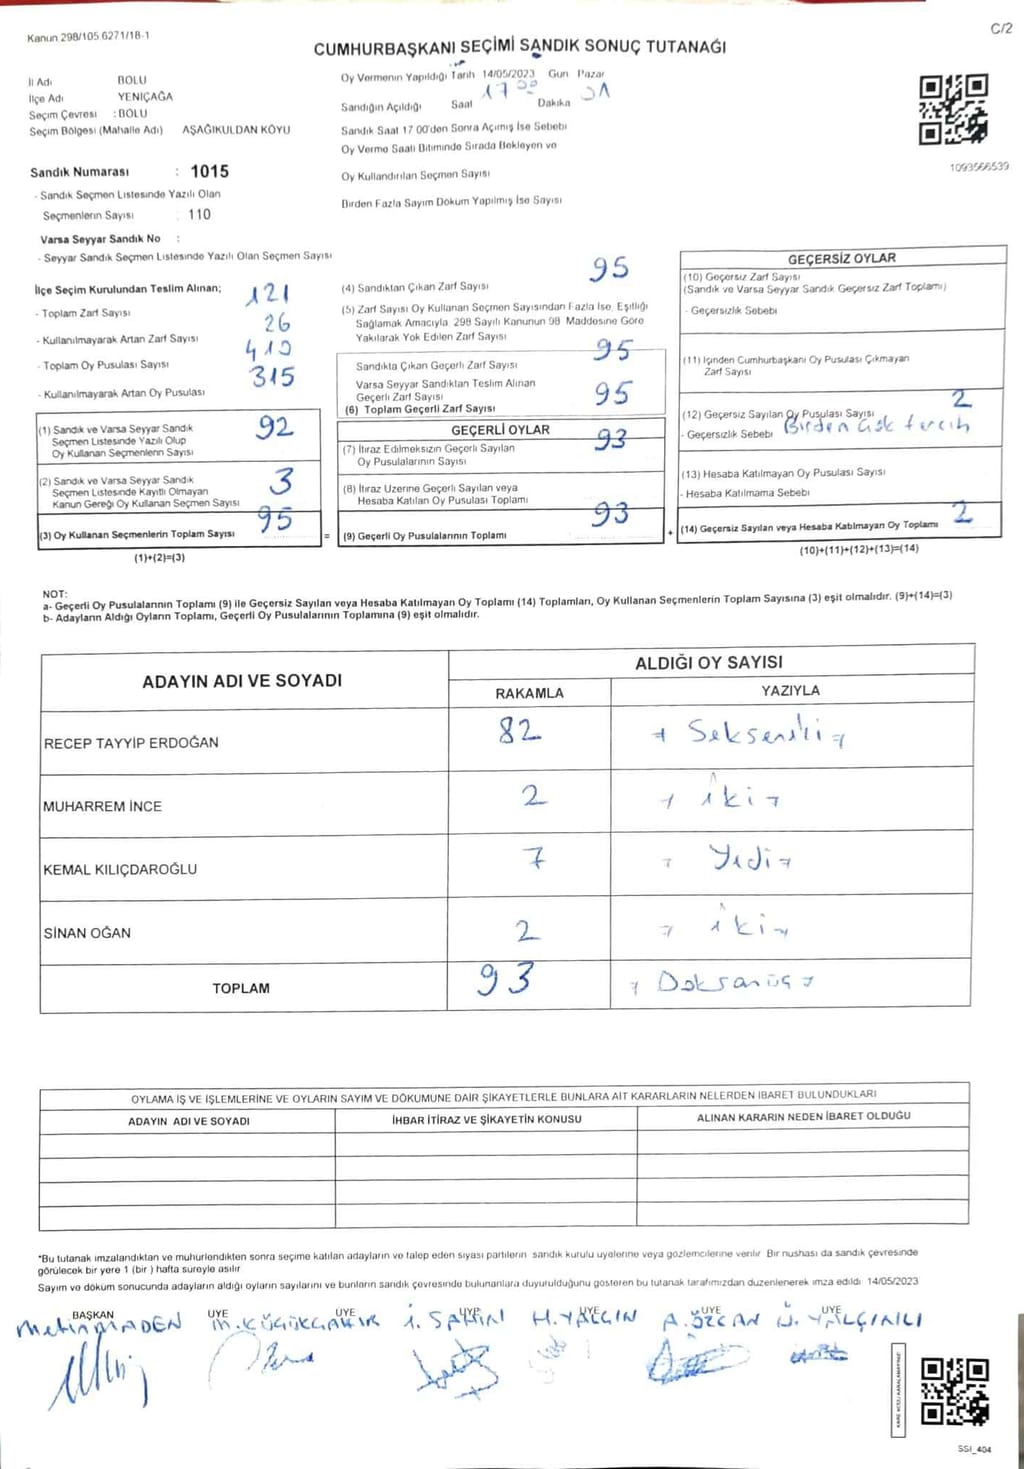 Kanun 298/105 6271/18-1
C/2
CUMHURBAŞKANI SEÇİMİ SANDIK SONUÇ TUTANAĞI
İl Adı BOLU
İlçe Adı YENİÇAĞA
Seçim Çevresi : BOLU
Seçim Bölgesi (Mahalle Adı) AŞAĞIKULDAN KÖYÜ
Oy Vermenin Yapıldığı Tarih 14/05/2023 Gün Pazar
Sandığın Açıldığı Saat 17 00 Dakika 01
Sandık Saat 17 00'den Sonra Açımış İse Sebebi
Oy Verme Saati Bitiminde Sırada Bekleyen ve
Oy Kullandırılan Seçmen Sayısı
Birden Fazla Sayım Döküm Yapılmış İse Sayısı
1093566539
Sandık Numarası : 1015
- Sandık Seçmen Listesinde Yazılı Olan
Seçmenlerin Sayısı : 110
Varsa Seyyar Sandık No :
- Seyyar Sandık Seçmen Listesinde Yazılı Olan Seçmen Sayısı
İlçe Seçim Kurulundan Teslim Alınan;
- Toplam Zarf Sayısı 121
- Kullanılmayarak Artan Zarf Sayısı 26
- Toplam Oy Pusulası Sayısı 410
- Kullanılmayarak Artan Oy Pusulası 315
(1) Sandık ve Varsa Seyyar Sandık
Seçmen Listesinde Yazılı Olup
Oy Kullanan Seçmenlerin Sayısı 92
(2) Sandık ve Varsa Seyyar Sandık
Seçmen Listesinde Kayıtlı Olmayan
Kanun Gereği Oy Kullanan Seçmen Sayısı 3
(3) Oy Kullanan Seçmenlerin Toplam Sayısı 95 =
(1)+(2)=(3)
(4) Sandıktan Çıkan Zarf Sayısı 95
(5) Zarf Sayısı Oy Kullanan Seçmen Sayısından Fazla İse, Eşitliği
Sağlamak Amacıyla 298 Sayılı Kanunun 98 Maddesine Göre
Yakılarak Yok Edilen Zarf Sayısı
Sandıkta Çıkan Geçerli Zarf Sayısı 95
Varsa Seyyar Sandıktan Teslim Alınan
Geçerli Zarf Sayısı
(6) Toplam Geçerli Zarf Sayısı 95
GEÇERLİ OYLAR
(7) İtiraz Edilmeksizin Geçerli Sayılan
Oy Pusulalarının Sayısı 93
(8) İtiraz Üzerine Geçerli Sayılan veya
Hesaba Katılan Oy Pusulası Toplamı
(9) Geçerli Oy Pusulalarının Toplamı 93 +
GEÇERSİZ OYLAR
(10) Geçersiz Zarf Sayısı
(Sandık ve Varsa Seyyar Sandık Geçersiz Zarf Toplamı)
- Geçersizlik Sebebi
(11) İçinden Cumhurbaşkanı Oy Pusulası Çıkmayan
Zarf Sayısı
(12) Geçersiz Sayılan Oy Pusulası Sayısı 2
- Geçersizlik Sebebi Birden Çok tercih
(13) Hesaba Katılmayan Oy Pusulası Sayısı
- Hesaba Katılmama Sebebi
(14) Geçersiz Sayılan veya Hesaba Katılmayan Oy Toplamı 2
(10)+(11)+(12)+(13)=(14)
NOT:
a- Geçerli Oy Pusulalarının Toplamı (9) ile Geçersiz Sayılan veya Hesaba Katılmayan Oy Toplamı (14) Toplamları, Oy Kullanan Seçmenlerin Toplam Sayısına (3) eşit olmalıdır. (9)+(14)=(3)
b- Adayların Aldığı Oyların Toplamı, Geçerli Oy Pusulalarının Toplamına (9) eşit olmalıdır.
ADAYIN ADI VE SOYADI
ALDIĞI OY SAYISI
RAKAMLA YAZIYLA
RECEP TAYYİP ERDOĞAN 82 Sekseniki
MUHARREM İNCE 2 iki
KEMAL KILIÇDAROĞLU 7 Yedi
SİNAN OĞAN 2 iki
TOPLAM 93 Doksanüç
OYLAMA İŞ VE İŞLEMLERİNE VE OYLARIN SAYIM VE DÖKÜMÜNE DAİR ŞİKAYETLERLE BUNLARA AİT KARARLARIN NELERDEN İBARET BULUNDUKLARI
ADAYIN ADI VE SOYADI İHBAR İTİRAZ VE ŞİKAYETİN KONUSU ALINAN KARARIN NEDEN İBARET OLDUĞU
*Bu tutanak imzalandıktan ve mühürlendikten sonra seçime katılan adayların ve talep eden siyasi partilerin sandık kurulu üyelerine veya gözlemcilerine verilir Bir nüshası da sandık çevresinde
görülecek bir yere 1 (bir ) hafta süreyle asılır
Sayım ve döküm sonucunda adayların aldığı oyların sayılarını ve bunların sandık çevresinde bulunanlara duyurulduğunu gösteren bu tutanak tarafımızdan düzenlenerek imza edildi 14/05/2023
BAŞKAN ÜYE ÜYE ÜYE ÜYE ÜYE ÜYE
Metin MADEN M.KÜÇÜKÇAKIR İ. ŞAHİN H.YALÇIN A.ÖZCAN Ü. YALÇINLI
KARE KODU KARALAMAYINIZ
SSI_404